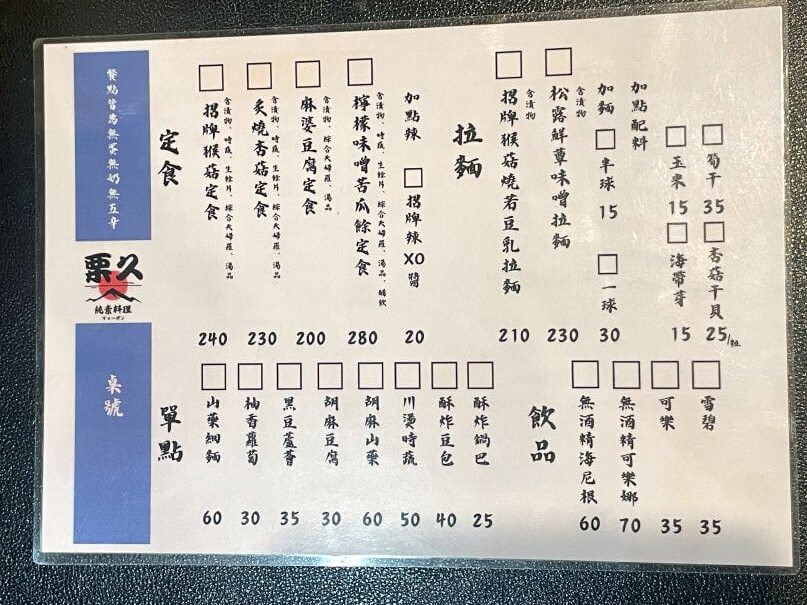 餐點皆為無蛋無奶無五辛
栗久
純素料理
ヴィーガン
桌號
定食
招牌猴菇定食
含漬物、時蔬、生餘片、綜合天婦羅、湯品
240
炙燒杏菇定食
含漬物、時蔬、生餘片、綜合天婦羅、湯品
230
麻婆豆腐定食
含漬物、綜合天婦羅、湯品
200
檸檬味噌苦瓜餘定食
含漬物、時蔬、生餘片、綜合天婦羅、湯品、醋飲
280
加點辣
招牌辣XO醬
20
拉麵
招牌猴菇燒若豆乳拉麵
含漬物
210
松露鮮蕈味噌拉麵
含漬物
230
加麵
半球
15
一球
30
加點配料
玉米
15
筍干
35
海帶芽
15
杏菇干貝
25/粒
單點
山藥細麵
60
柚香蘿蔔
30
黑豆蘆薈
35
胡麻豆腐
30
胡麻山藥
60
川燙時蔬
50
酥炸豆包
40
酥炸鍋巴
25
飲品
無酒精海尼根
60
無酒精可樂娜
70
可樂
35
雪碧
35